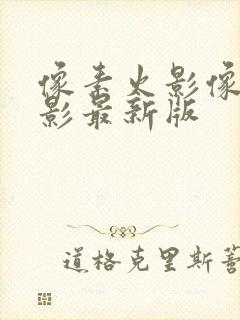 像素火影像
影最新版
道格克里斯蒂